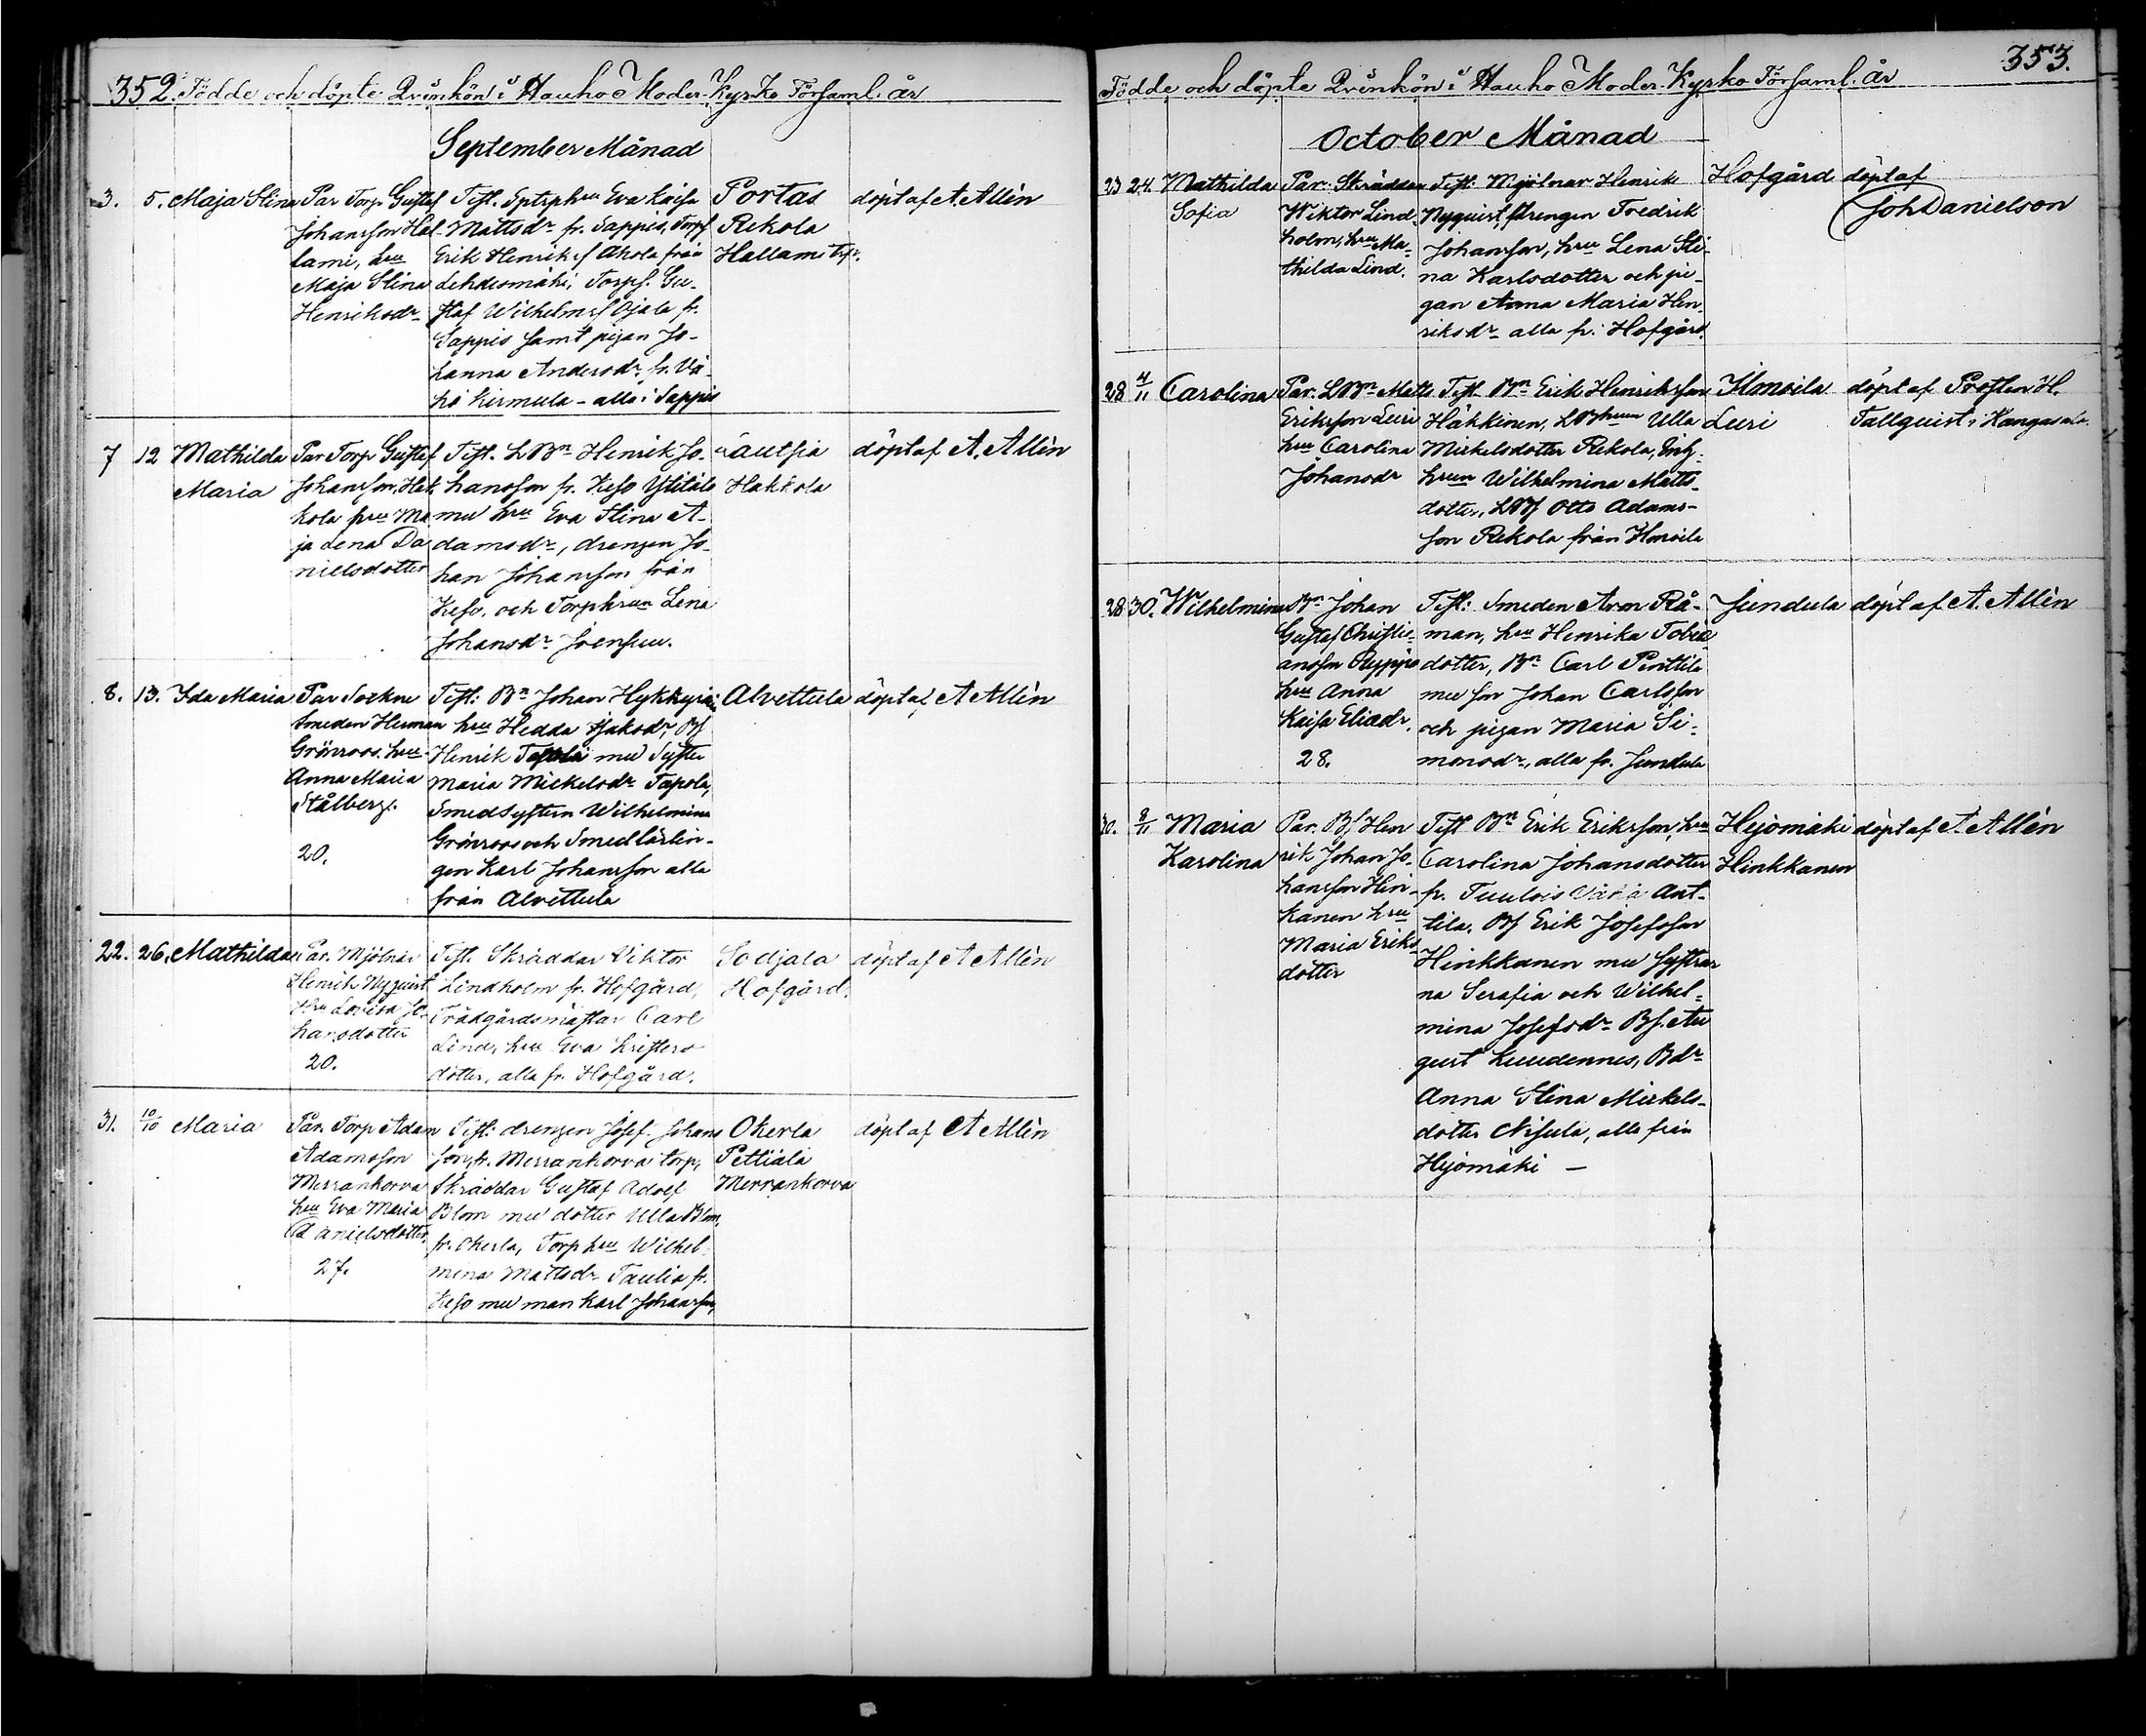 352. Födde och döpte Qvinkön i Hauho Moder-Kyrko Församl. år
September Månad
3. 5. Maja Stina
Par Torp. Gustaf
Johansson Hal
lami, hru
Maja Stina
Henriksdr
Test. Sptrphru Eva Kaisa
Mattsdr fr. Sappis, Torps
Erik Henriks Ahola från
Lehdesmäki, Torps. Gu-
staf Wilhelms Ojala fr.
Sappis samt pigan Jo-
hanna Andersdr fr. Vä-
hö Kirmula - alla i Sappis
Portas
Rekola
Hallami trp.
döpt af A. Allén
7 12 Mathilda
Maria
Par Torp Gustaf
Johansson, Hak
kola hru Ma
ja Lena Da
nielsdotter
Test. LBn Henrik Jo-
hansson fr. Keso Ylitalo
med hru Eva Stina A-
damsdr, drengen Jo-
han Johansson från
Keso, och Torphrun Lena
Johansdr Joensuu.
Lautsia
Hakkola
döpt af A. Allén
8. 13. Ida Maria
Par Sockne
Smeden Herman
Grönroos, hru
Anna Maria
Stålberg.
20.
Test: Bn Johan Hykkyrä
hru Hedda Isaksdr, Bs
Henrik Tapola med Syster
Maria Mickelsdr Tapola,
Smedsystern Wilhelmina
Grönroos och Smedlärlin-
gen Karl Johansson alla
från Alvettula
Alvettula
döpt af A Allén
22. 26. Mathilda
Par. Mjölnar
Henrik Nyquist
hru Lovisa Jo-
hansdotter
20.
Test. Skräddar Viktor
Lindholm fr. Hofgård,
Trädgårdsmästar Carl
Lind, hru Eva Kristers
dotter, alla fr. Hofgård.
Sodjala
Hofgård.
döpt af A Allén
31. 10/10 Maria
Par. Torp Adam
Adamsson
Merrankorva
hru Eva Maria
Danielsdotter
27.
Test: drengen Josef Johans
son, fr. Merrankorva torp,
Skräddar Gustaf Adolf
Blom med dotter Ulla Blom,
fr. Okerla, Torp hru Wilhel-
mina Mattsdr Taulia fr.
Keso med man Karl Johansson,
Okerla
Pettiälä
Merrankorva
döpt af A Allén
353.
Födde och döpte Qvinkön i Hauho Moder-Kyrko Församl. år
October Månad
23 24. Mathilda
Sofia
Par. Skräddar
Wiktor Lind
holm, hru Ma-
thilda Lind.
Test: Mjölnar Henrik
Nyquist, drengen Fredrik
Johansson, hru Lena Sti-
na Karlsdotter och pi-
gan Anna Maria Hen-
riksdr alla fr. Hofgård.
Hofgård
döpt af
Joh Danielson
28 4/11 Carolina
Par. LBn Matts
Eriksson Luri
hru Carolina
Johansdr
Test. Bn Erik Henriksson
Häkkinen, LBhrun Ulla
Mickelsdotter Rekola, Enk-
hrun Wilhelmina Matts-
dotter, LBs Otto Adams-
son Rekola från Hmoila
Ilmoila
Luri
döpt af Prosten H.
Tallquist i Kangasala.
28 30. Wilhelmina
Bn Johan
Gustaf Christi-
ansson Ryppö
hru Anna
Kaisa Eliadr.
28.
Test: Smeden Aron Rå-
man, hru Henrika Tobia
dotter, Bn Carl Penttila
med son Johan Carlsson
och pigan Maria Si-
monsdr, alla fr. Jundula
Jundula
döpt af A. Allén
30. 8/11 Maria
Karolina
Par. Bs Hen
rik Johan Jo-
hansson Hin-
kanen hru
Maria Eriks
dotter
Test Bn Erik Eriksson, hru
Carolina Johansdotter
fr. Tuulois Wähä Ant-
tila. Bs Erik Josefsson
Hinkkanen med systrar
na Serafia och Wilhel-
mina Josefsdr Bs. Au
gust Kuudennes, Bdr
Anna Stina Mickels-
dotter Nisula, alla från
Hyömäki —
Hejomäki
Hinkkanen
döpt af A. Allén